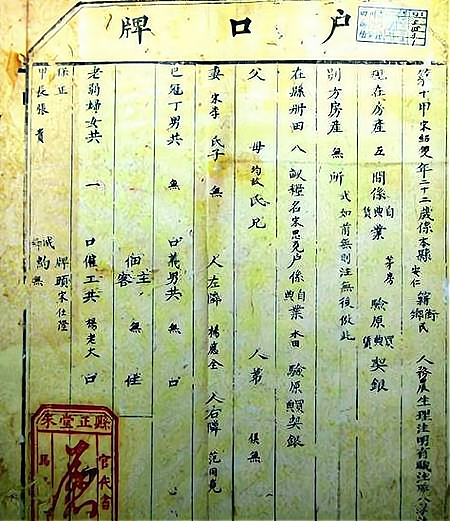 户口牌
第十甲宋紹双年二十二歲係本縣安仁鄉籍民人務農生理注明有職注職
現在房產五間係自業茅房驗原典買契銀
別方房產無所式如前無則注無後倣此
在縣册田八畝糧名宋思堯户係自業本田驗原典買契銀
父母均故氏兄人弟俱無
妻宋李氏子無人左鄰楊應全人右鄰范同堯
已冠丁男共無口義男共無口
主佃客無住
老弱婦女共一口僱工共楊老大口
保正牌頭宋仕隆
甲長張貴鄉約無
縣正堂朱
官代書